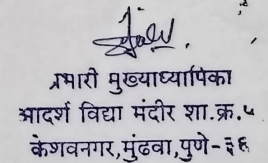 प्रभारी मुख्याध्यापिका
आदर्श विद्या मंदीर शा.क्र.५
केशवनगर,मुंढवा,पुणे-३६